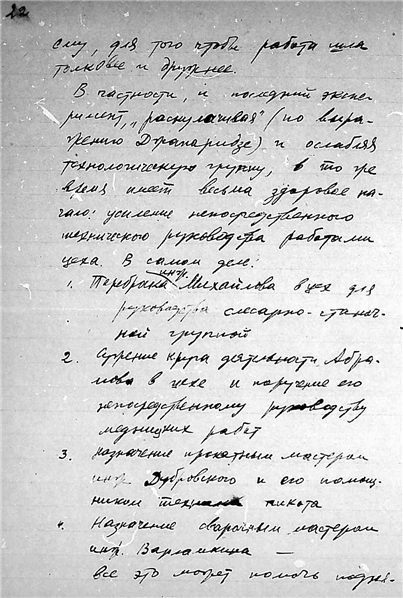 22
ему, для того чтобы работа шла
толковее и дружнее.
В частности, и последний экспе-
римент, "раскулачивая" (по выра-
жению Джапаридзе) и ослабляя
технологическую группу, в то же
время имеет весьма здоровое на-
чало: усиление непосредственного
технического руководства работами
цеха. В самом деле:
1. инж. Михайлова в цех для
руководства слесарно-станоч-
ной группой
2. Сужение круга деятельности Абра-
мова в цехе и поручение его
непосредственному руководству
медницких работ
3. Назначение прокатным мастером
инж. Дубровского и его помощ-
ником
4. Назначение сварочным мастером
инж. Варламкина —
все это может помочь